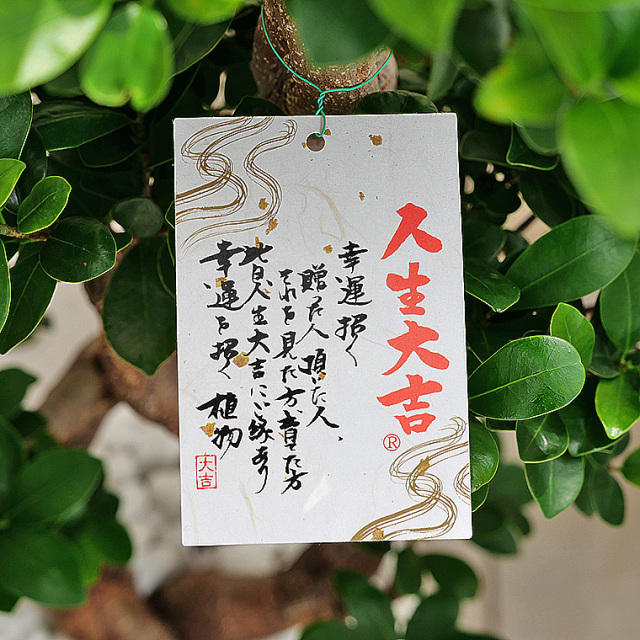 人生大吉
®
幸運招く
贈った人、頂いた人、
それを見た方、育てた方
皆人生大吉にご縁あり
幸運を招く植物
大吉